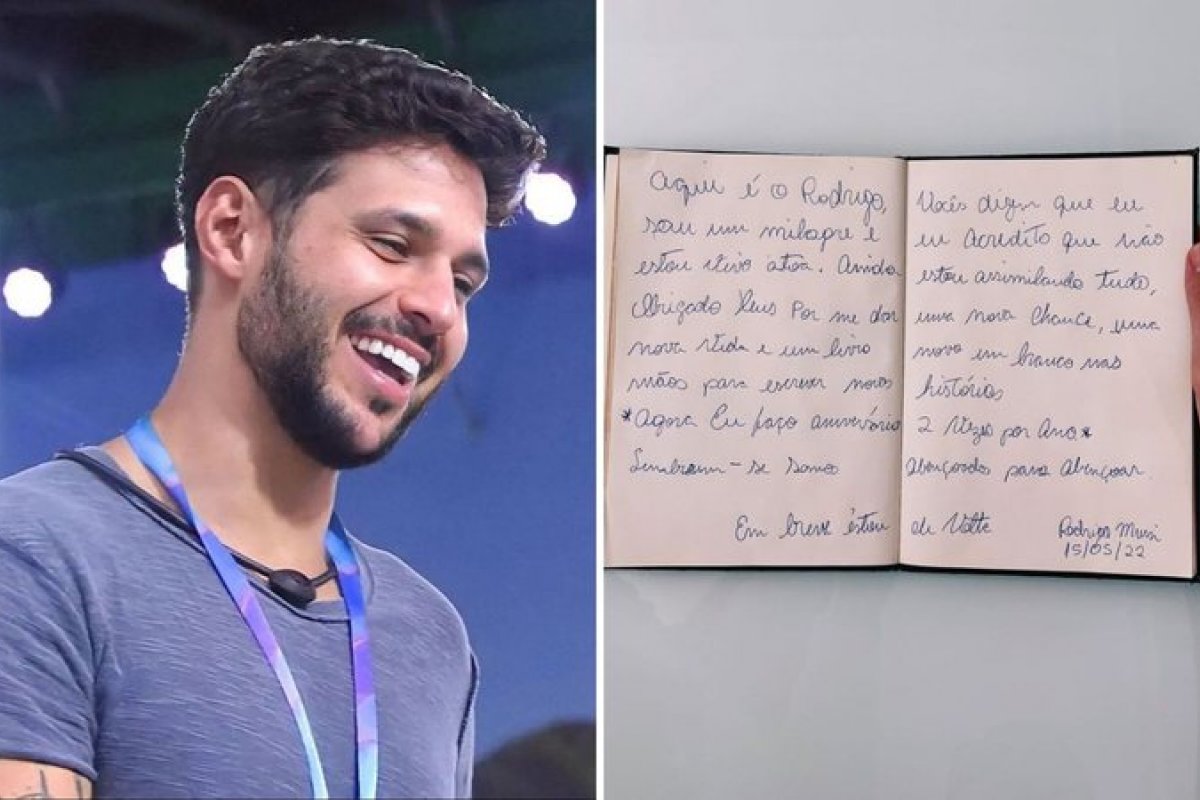 Aqui é o Rodrigo, Vocês dizem que eu
sou um milagre e eu acredito que não
estou vivo atoa. Ainda estou assimilando tudo,
Obrigado Deus Por me dar uma nova chance, uma
nova vida e um livro novo em branco nas
mãos para escrever novas histórias
*Agora Eu faço aniversário 2 vezes por Ano*
Lembram-se somos abençoados para abençoar.
Em breve estou de Volta Rodrigo Mussi
15/05/22